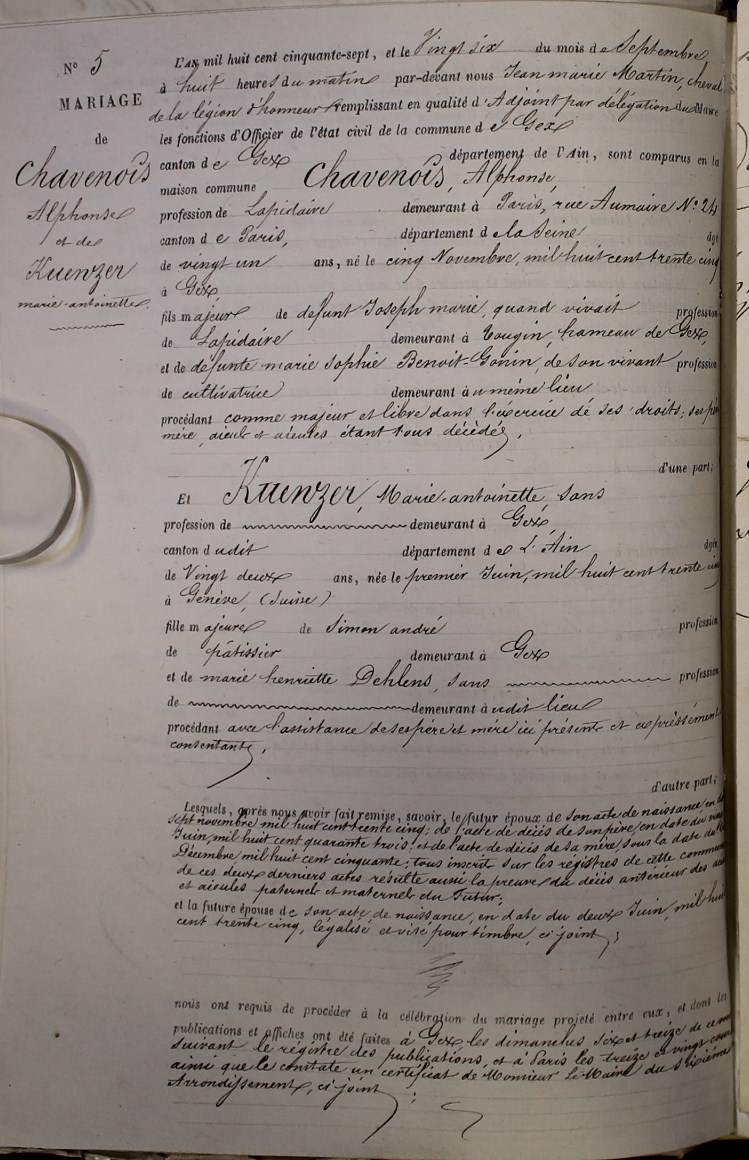 N° 5
MARIAGE
de
Chavenois
Alphonse
et de
Kuenzer
marie-antoinette.
L'AN mil huit cent cinquante-sept, et le Vingt six du mois de Septembre
à huit heures du matin par-devant nous Jean marie Martin, cheval
de la légion d'honneur remplissant en qualité d'Adjoint par délégation du Maire
les fonctions d'Officier de l'état civil de la commune de Gex
canton de Gex département de l'Ain, sont comparus en la
maison commune Chavenois, Alphonse,
profession de Lapidaire demeurant à Paris, rue Aumaire N° 24
canton de Paris, département de la Seine âgé
de vingt un ans, né le cinq Novembre, mil huit cent trente cinq
à Gex,
fils majeur de défunt Joseph marie, quand vivait profession
de Lapidaire demeurant à Tougin, hameau de Gex,
et de défunte marie Sophie Benoit-Gonin, de son vivant profession
de cultivatrice demeurant au même lieu
procédant comme majeur et libre dans l'éxercice dé ses droits; ses pére
mére, aieuls et aieules étant tous décédés,
d'une part;
Et Kuenzer, Marie-antoinette, sans
profession de demeurant à Gex,
canton dudit département de L'Ain âgée
de Vingt deux ans, née le premier Juin, mil huit cent trente cinq
à Genéve, (Suisse)
fille majeure de Simon andré profession
de pâtissier demeurant à Gex
et de marie henriette Dehlens, sans profession
de demeurant audit lieu
procédant avec l'assistance de ses pére et mére ici présents et expréssément
consentants,
d'autre part;
Lesquels, après nous avoir fait remise, savoir, le futur époux de son acte de naissance en date
sept novembre mil huit cent trente cinq; de l'acte de décès de son pére, en date du
Juin, mil huit cent quarante trois; et de l'acte de décès de sa mére, sous la date du
Décembre mil huit cent cinquante; tous inscrits sur les régistres de cette commune
de ces deux derniers actes résulte aussi la preuve du décès antérieur des
et aieules paternels et maternels du Futur;
et la future épouse de son acte de naissance, en date du deux Juin, mil huit
cent trente cinq, légalisé et visé pour timbre, ci joint;
nous ont requis de procéder à la célébration du mariage projeté entre eux, et dont les
publications et affiches ont été faites à Gex les dimanches six et treize de ce mois
suivant le régistre des publications, et à Paris les treize et vingt
ainsi que le constate un certificat de Monsieur le Maire du Sixiéme
Arrondissement, ci joint;